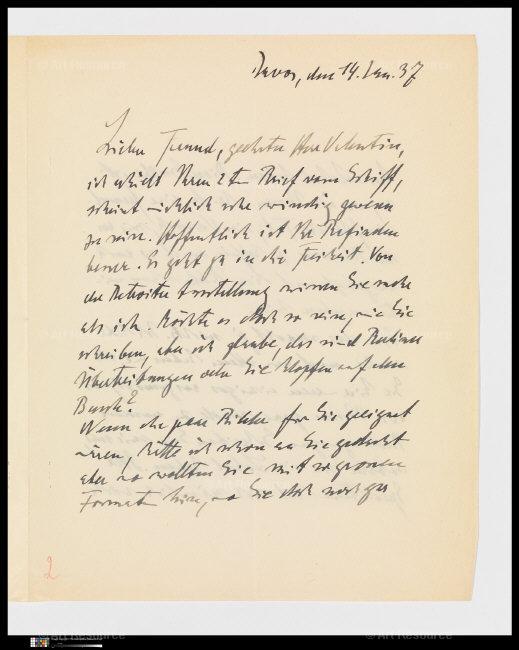 Davos, den 14. Jan. 37
Lieber Freund, geehrter Herr Valentin,
ich erhielt Ihren 2ten Brief vom Schiff,
scheint wirklich sehr windig gewesen
zu sein. Hoffentlich ist Ihr Befinden
besser. Es geht ja in die Freiheit. Von
der Detroiter Ausstellung wissen Sie mehr
als ich. Möchte es doch so sein, wie Sie
schreiben, aber ich glaube, das sind Berliner
Übertreibungen oder Sie klopfen auf den
Busch?
Wenn die paar Bilder für Sie geeignet
wären, hätte ich schon an Sie gedacht
aber wo wollten Sie mit so grossen
Formaten hin, wo Sie doch noch gar
2
© Art Resource
© Art Resource
© Art Resource
© Art Resource